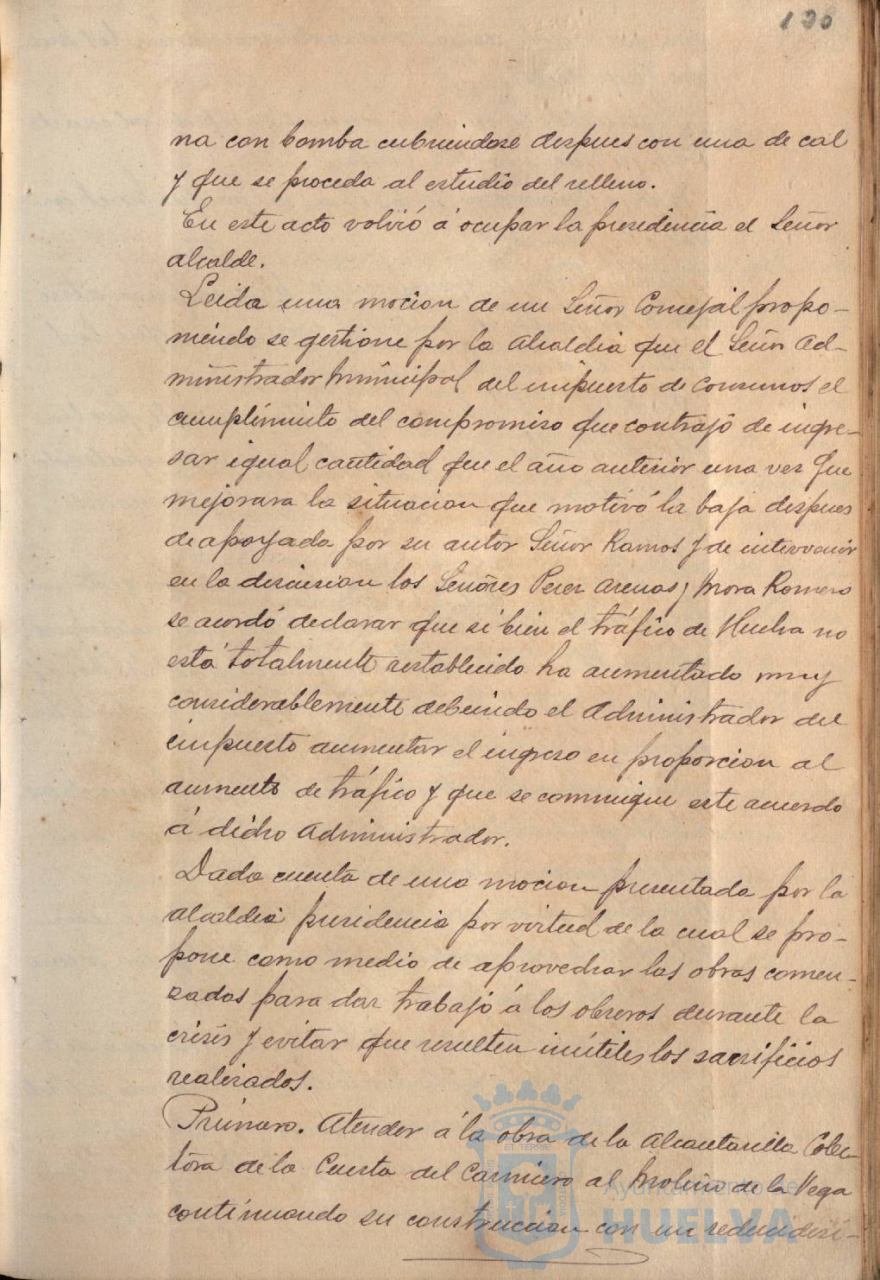 136
na con bomba cubriendose despues con una de cal
y que se proceda al estudio del relleno.
En este acto volvió á ocupar la presidencia el Señor
alcalde.
Leida una mocion de un Señor Concejal propo-
niendo se gestione por la Alcaldia que el Señor Ad-
ministrador municipal del impuesto de consumos el
cumplimiento del compromiso que contrajó de ingre-
sar igual cantidad que el año anterior una vez que
mejorara la situacion que motivó la baja despues
de apoyada por su autor Señor Ramos y de intervenir
en la discusion los Señores Perez Arenas y Mora Romero
se acordó declarar que si bien el tráfico de Huelva no
está totalmente restablecido ha aumentado muy
considerablemente debiendo el Administrador del
impuesto aumentar el ingreso en proporcion al
aumento de tráfico y que se comunique este acuerdo
á dicho Administrador.
Dada cuenta de una mocion presentada por la
alcaldia presidencia por virtud de la cual se pro-
pone como medio de aprovechar las obras comen-
zadas para dar trabajó á los obreros durante la
crisis y evitar que resulten inútiles los sacrificios
realizados.
Primero. Atender á la obra de la Alcantarilla Colec-
tora de la Cuesta del Carnicero al Molino de la Vega
continuando su construccion con un reducidisi-
Ayuntamiento de
HUELVA